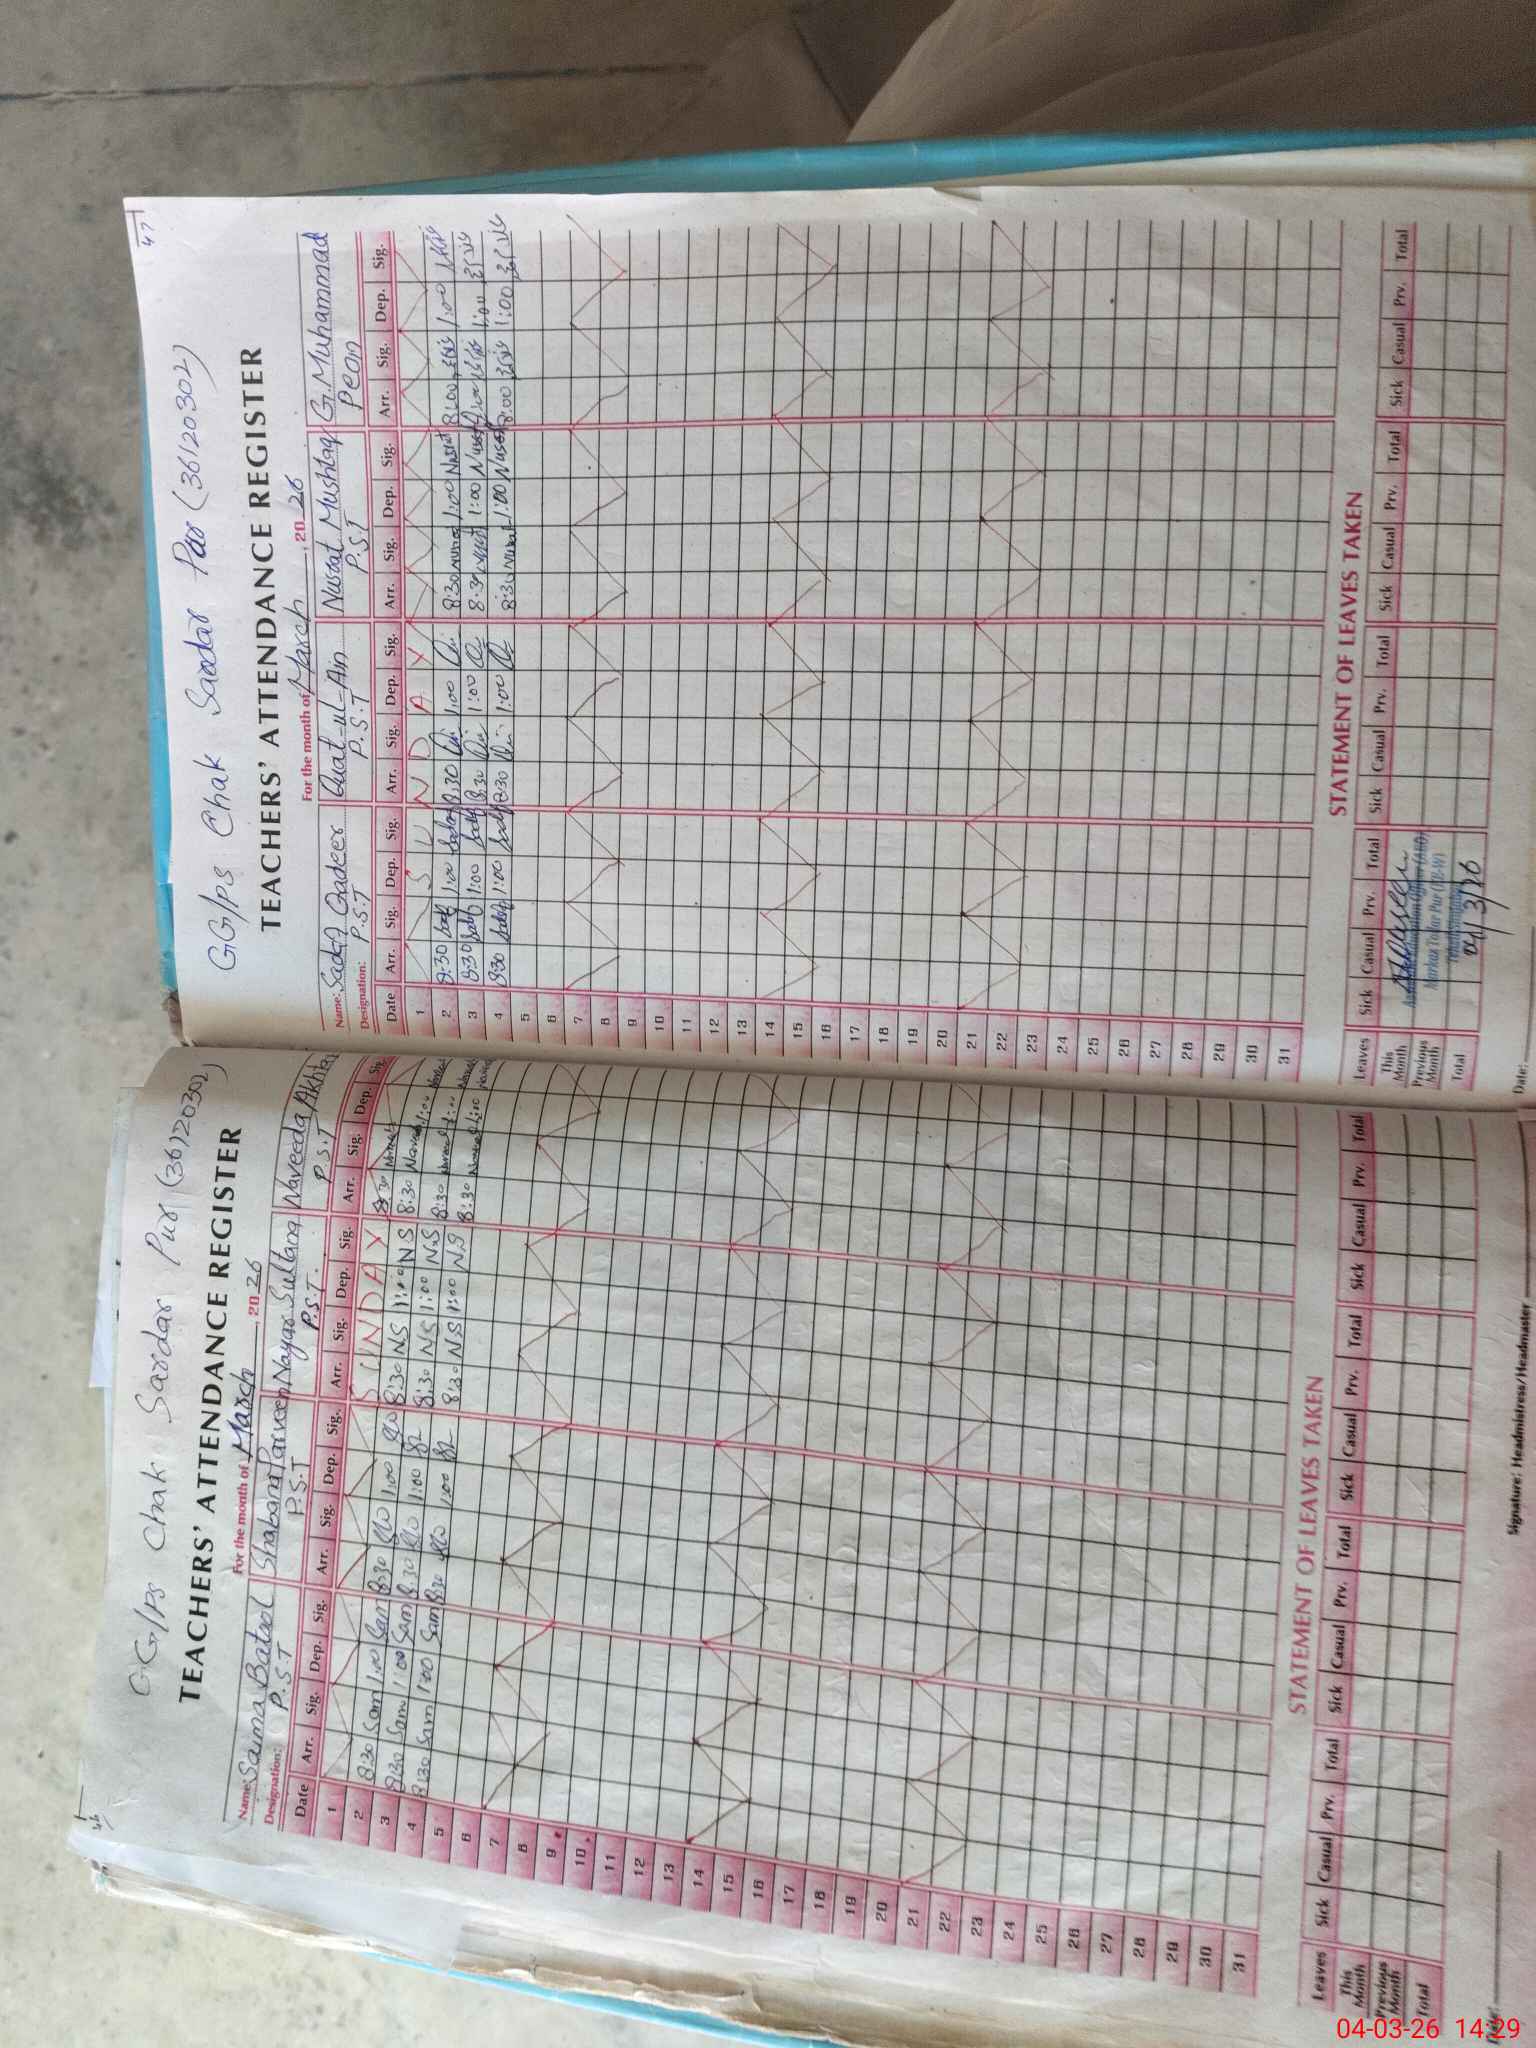 46
GG/PS Chak Sardar Pur (36120302)
TEACHERS' ATTENDANCE REGISTER
For the month of March, 2026
Name: Saima Batool Shabana Parveen Nayar Sultana Naveeda Akhtar
Designation: P.S.T P.S.T P.S.T. P.S.T
Date Arr. Sig. Dep. Sig. Arr. Sig. Dep. Sig. Arr. Sig. Dep. Sig. Arr. Sig. Dep. Sig.
1 SUNDAY
2 8:30 Sam 1:00 Sam 8:30 1:00 8:30 NS 1:00 NS 8:30
3 8:30 Sam 1:00 Sam 8:30 1:00 8:30 NS 1:00 NS 8:30 1:00
4 8:30 Sam 1:00 Sam 8:30 1:00 8:30 NS 1:00 NS 8:30 1:00
5
6
7
8
9
10
11
12
13
14
15
16
17
18
19
20
21
22
23
24
25
26
27
28
29
30
31
STATEMENT OF LEAVES TAKEN
Leaves Sick Casual Prv. Total Sick Casual Prv. Total Sick Casual Prv. Total Sick Casual Prv. Total
This Month
Previous Month
Total
Date: Signature: Headmistress/Headmaster
47
GG/PS Chak Sardar Pur (36120302)
TEACHERS' ATTENDANCE REGISTER
For the month of March, 2026
Name: Sadaf Qadeer Quat-ul-Ain Nusrat Mushtaq G. Muhammad
Designation: P.S.T P.S.T P.S.T Peon
Date Arr. Sig. Dep. Sig. Arr. Sig. Dep. Sig. Arr. Sig. Dep. Sig. Arr. Sig. Dep. Sig.
1 SUNDAY
2 8:30 Sadaf 1:00 Sadaf 8:30 1:00 8:30 Nusrat 1:00 Nusrat 8:00 1:00
3 8:30 Sadaf 1:00 Sadaf 8:30 1:00 8:30 Nusrat 1:00 Nusrat 8:00 1:00
4 8:30 Sadaf 1:00 Sadaf 8:30 1:00 8:30 Nusrat 1:00 Nusrat 8:00 1:00
5
6
7
8
9
10
11
12
13
14
15
16
17
18
19
20
21
22
23
24
25
26
27
28
29
30
31
STATEMENT OF LEAVES TAKEN
Leaves Sick Casual Prv. Total Sick Casual Prv. Total Sick Casual Prv. Total Sick Casual Prv. Total
This Month
Previous Month
Total
Assistant Education Officer (AEO)
Markaz Tatar Pur (W)
04/3/26
Date:
04-03-26 14:29